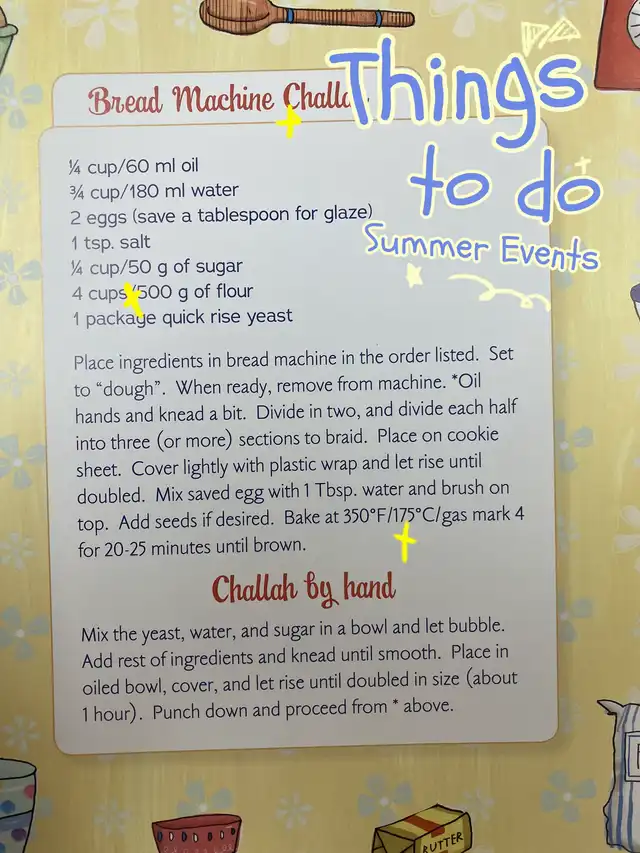 Bread Machine Challa
Things
to do
Summer Events
¼ cup/60 ml oil
¾ cup/180 ml water
2 eggs (save a tablespoon for glaze)
1 tsp. salt
¼ cup/50 g of sugar
4 cups/500 g of flour
1 package quick rise yeast
Place ingredients in bread machine in the order listed. Set
to “dough”. When ready, remove from machine. *Oil
hands and knead a bit. Divide in two, and divide each half
into three (or more) sections to braid. Place on cookie
sheet. Cover lightly with plastic wrap and let rise until
doubled. Mix saved egg with 1 Tbsp. water and brush on
top. Add seeds if desired. Bake at 350°F/175°C/gas mark 4
for 20-25 minutes until brown.
Challah by hand
Mix the yeast, water, and sugar in a bowl and let bubble.
Add rest of ingredients and knead until smooth. Place in
oiled bowl, cover, and let rise until doubled in size (about
1 hour). Punch down and proceed from * above.
BUTTER